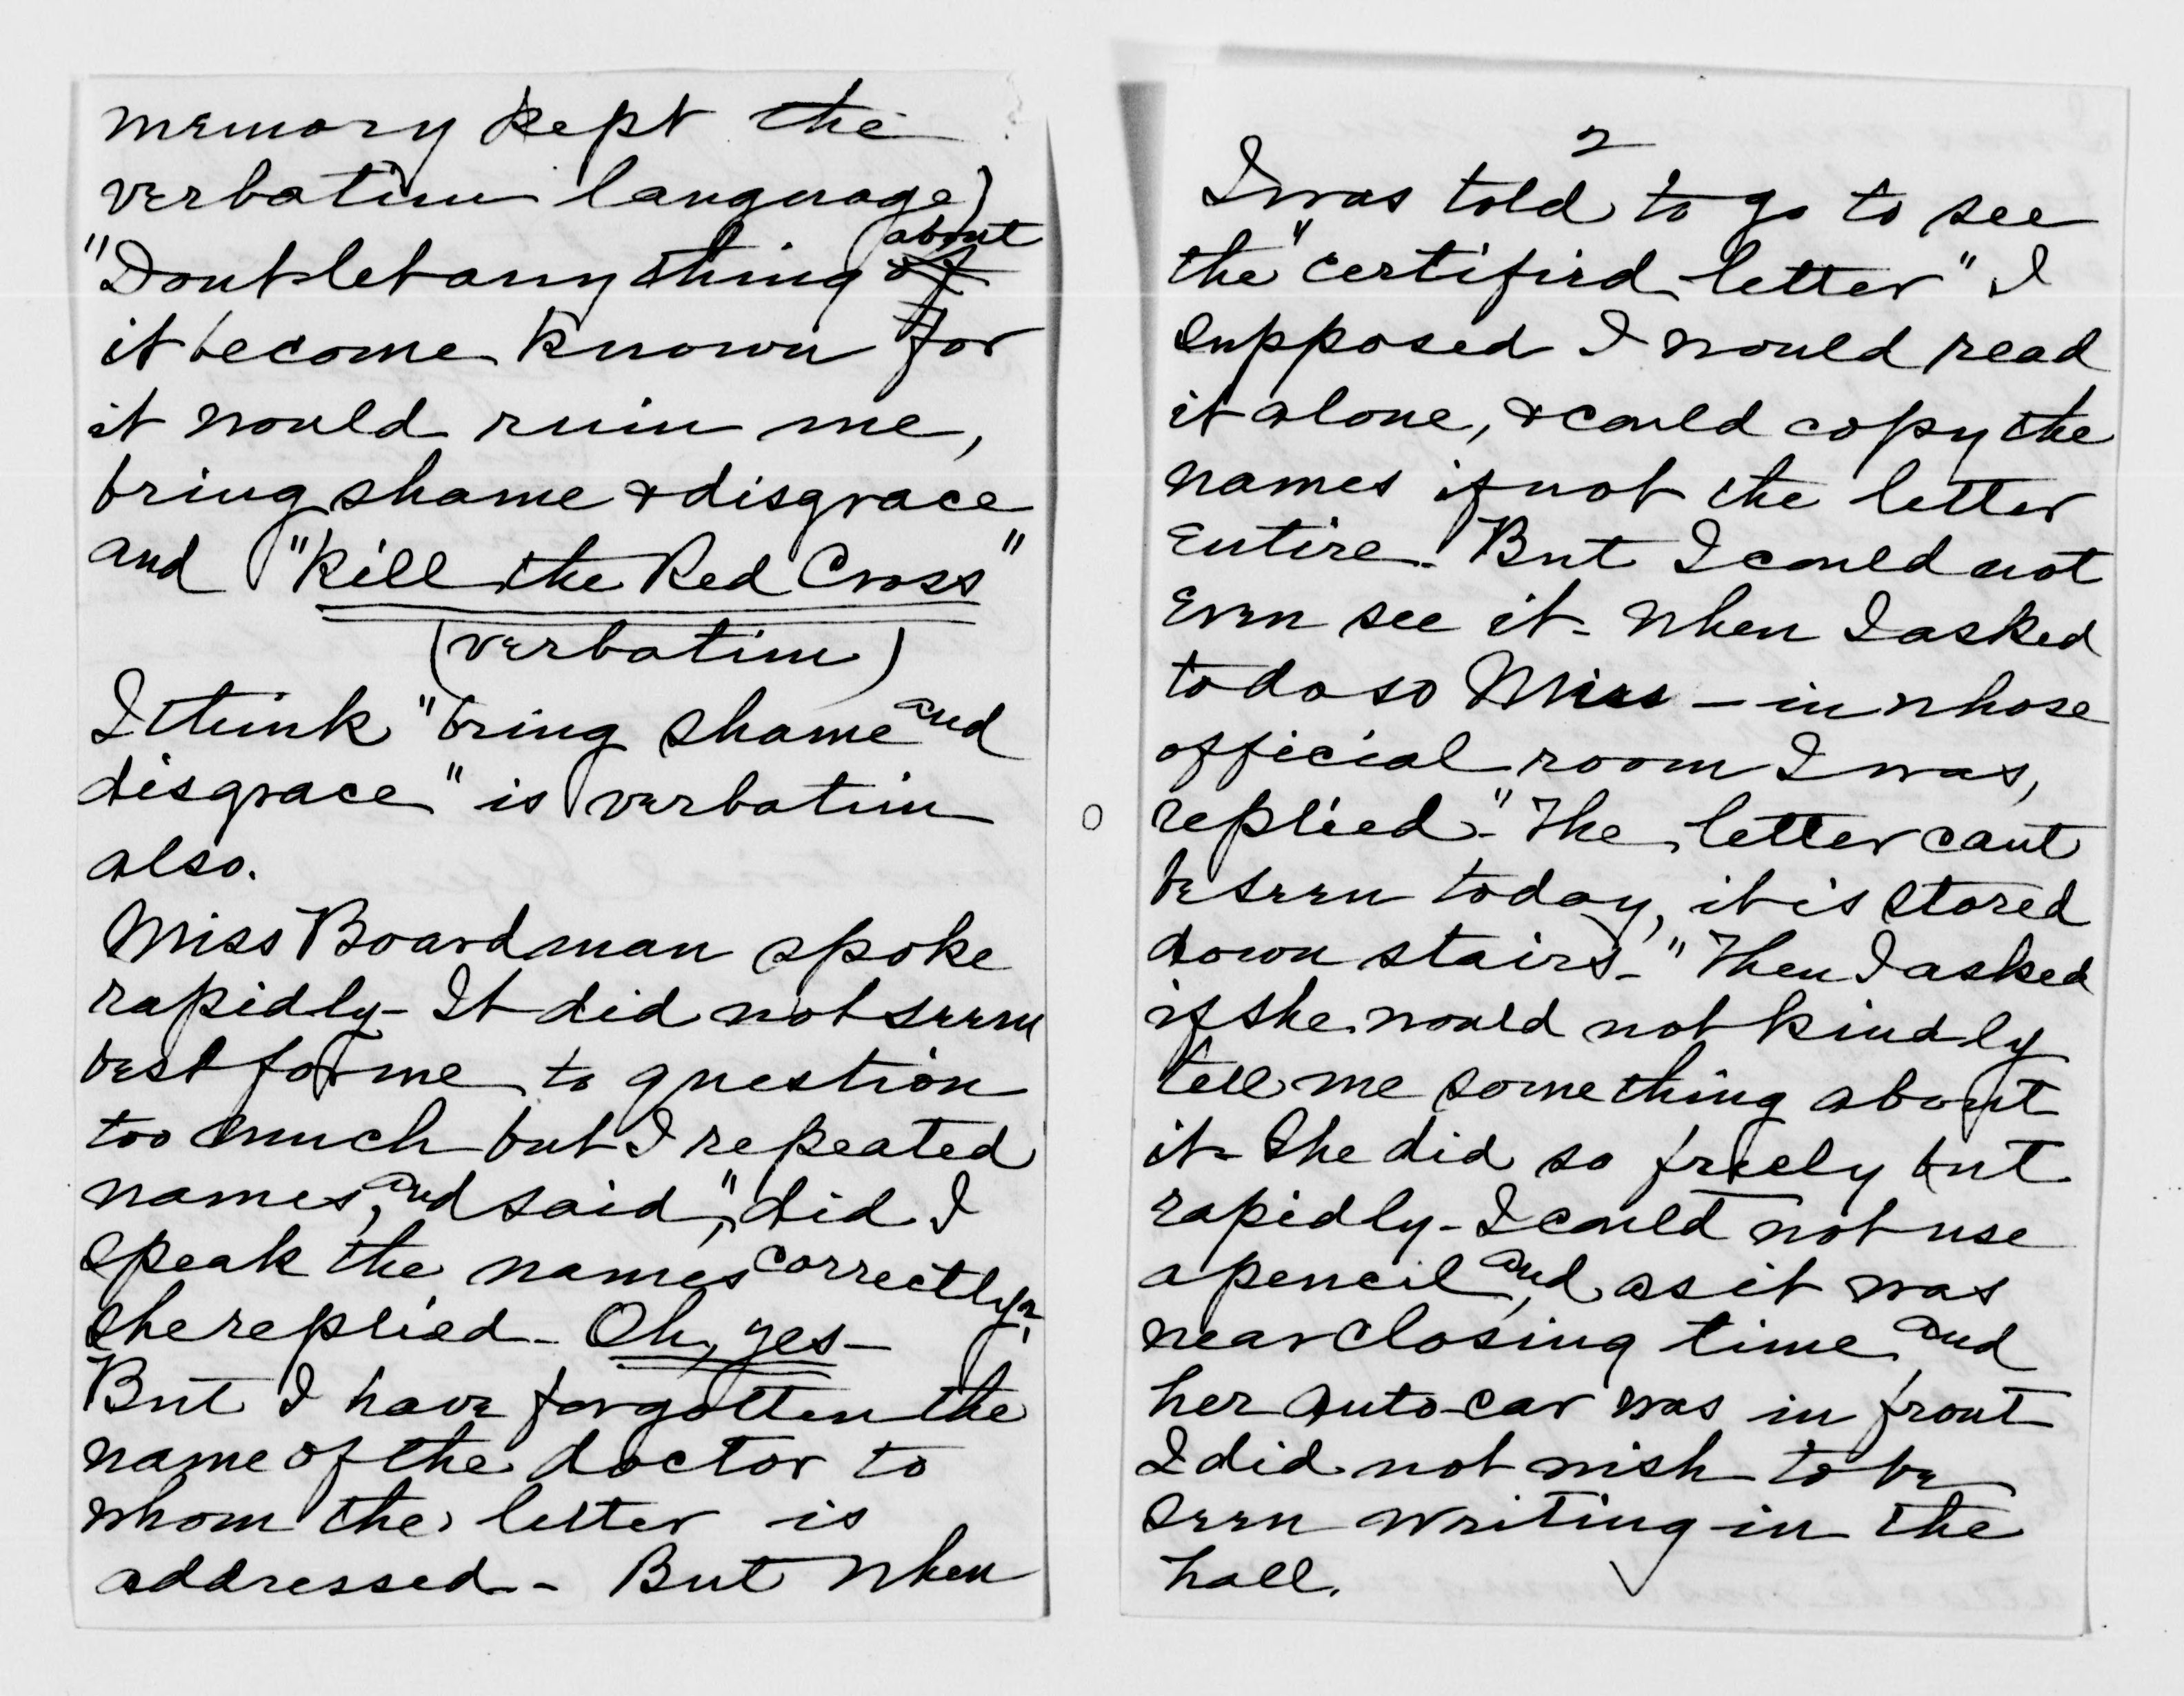 memory kept the
verbatim language)
"Dont let any thing of about
it become known for
it would ruin me,
bring shame & disgrace
and "Kill the Red Cross"
(verbatim)
I think "bring shame and
disgrace" is verbatim
also.
Miss Boardman spoke
rapidly - It did not seem
best for me to question
too much but I repeated
names, and said, "did I
speak the names correctly?
she replied - Oh, yes -
But I have forgotten the
name of the doctor to
whom the letter is
addressed - But when
2
I was told to go to see
the "certified letter" I
supposed I would read
it alone, & could copy the
names if not the letter
entire. But I could not
even see it - When I asked
to do so Miss - in whose
official room I was,
replied - "The letter cant
be seen today, it is stored
down stairs - " Then I asked
if she would not kindly
tell me something about
it - She did so freely but
rapidly - I could not use
a pencil, and as it was
near closing time and
her auto-car was in front
I did not wish to be
seen writing in the
hall.